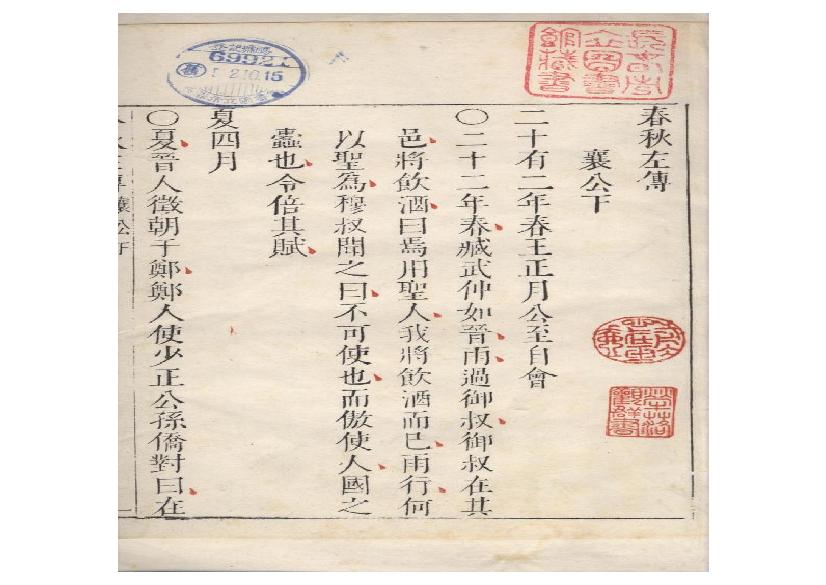 春秋左傳
襄公下
二十有二年春王正月公至自會
〇二十二年春臧武仲如晉雨過御叔御叔在其
邑將飲酒曰焉用聖人我將飲酒而已雨行何
以聖爲穆叔聞之曰不可使也而傲使人國之
蠹也令倍其賦
夏四月
〇夏晉人徵朝于鄭鄭人使少正公孫僑對曰在
69921
2.10.15